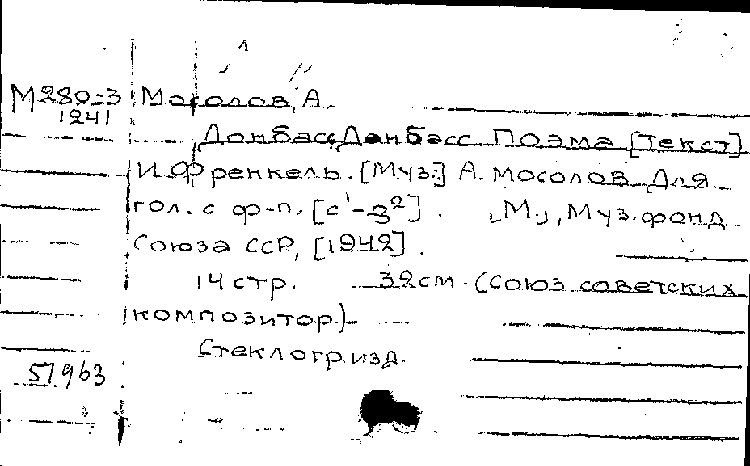 М280-3 Мосолов, А.
1241
Донбасс, Донбасс. Поэма [Текст]
И. Френкель. [Муз.] А. Мосолов. Для
гол. с ф-п. [c¹-g²]. М., Муз. фонд
Союза ССР, [1942].
14 стр. 32 см. (Союз советских
композитор.)
Стеклогр. изд.
51963